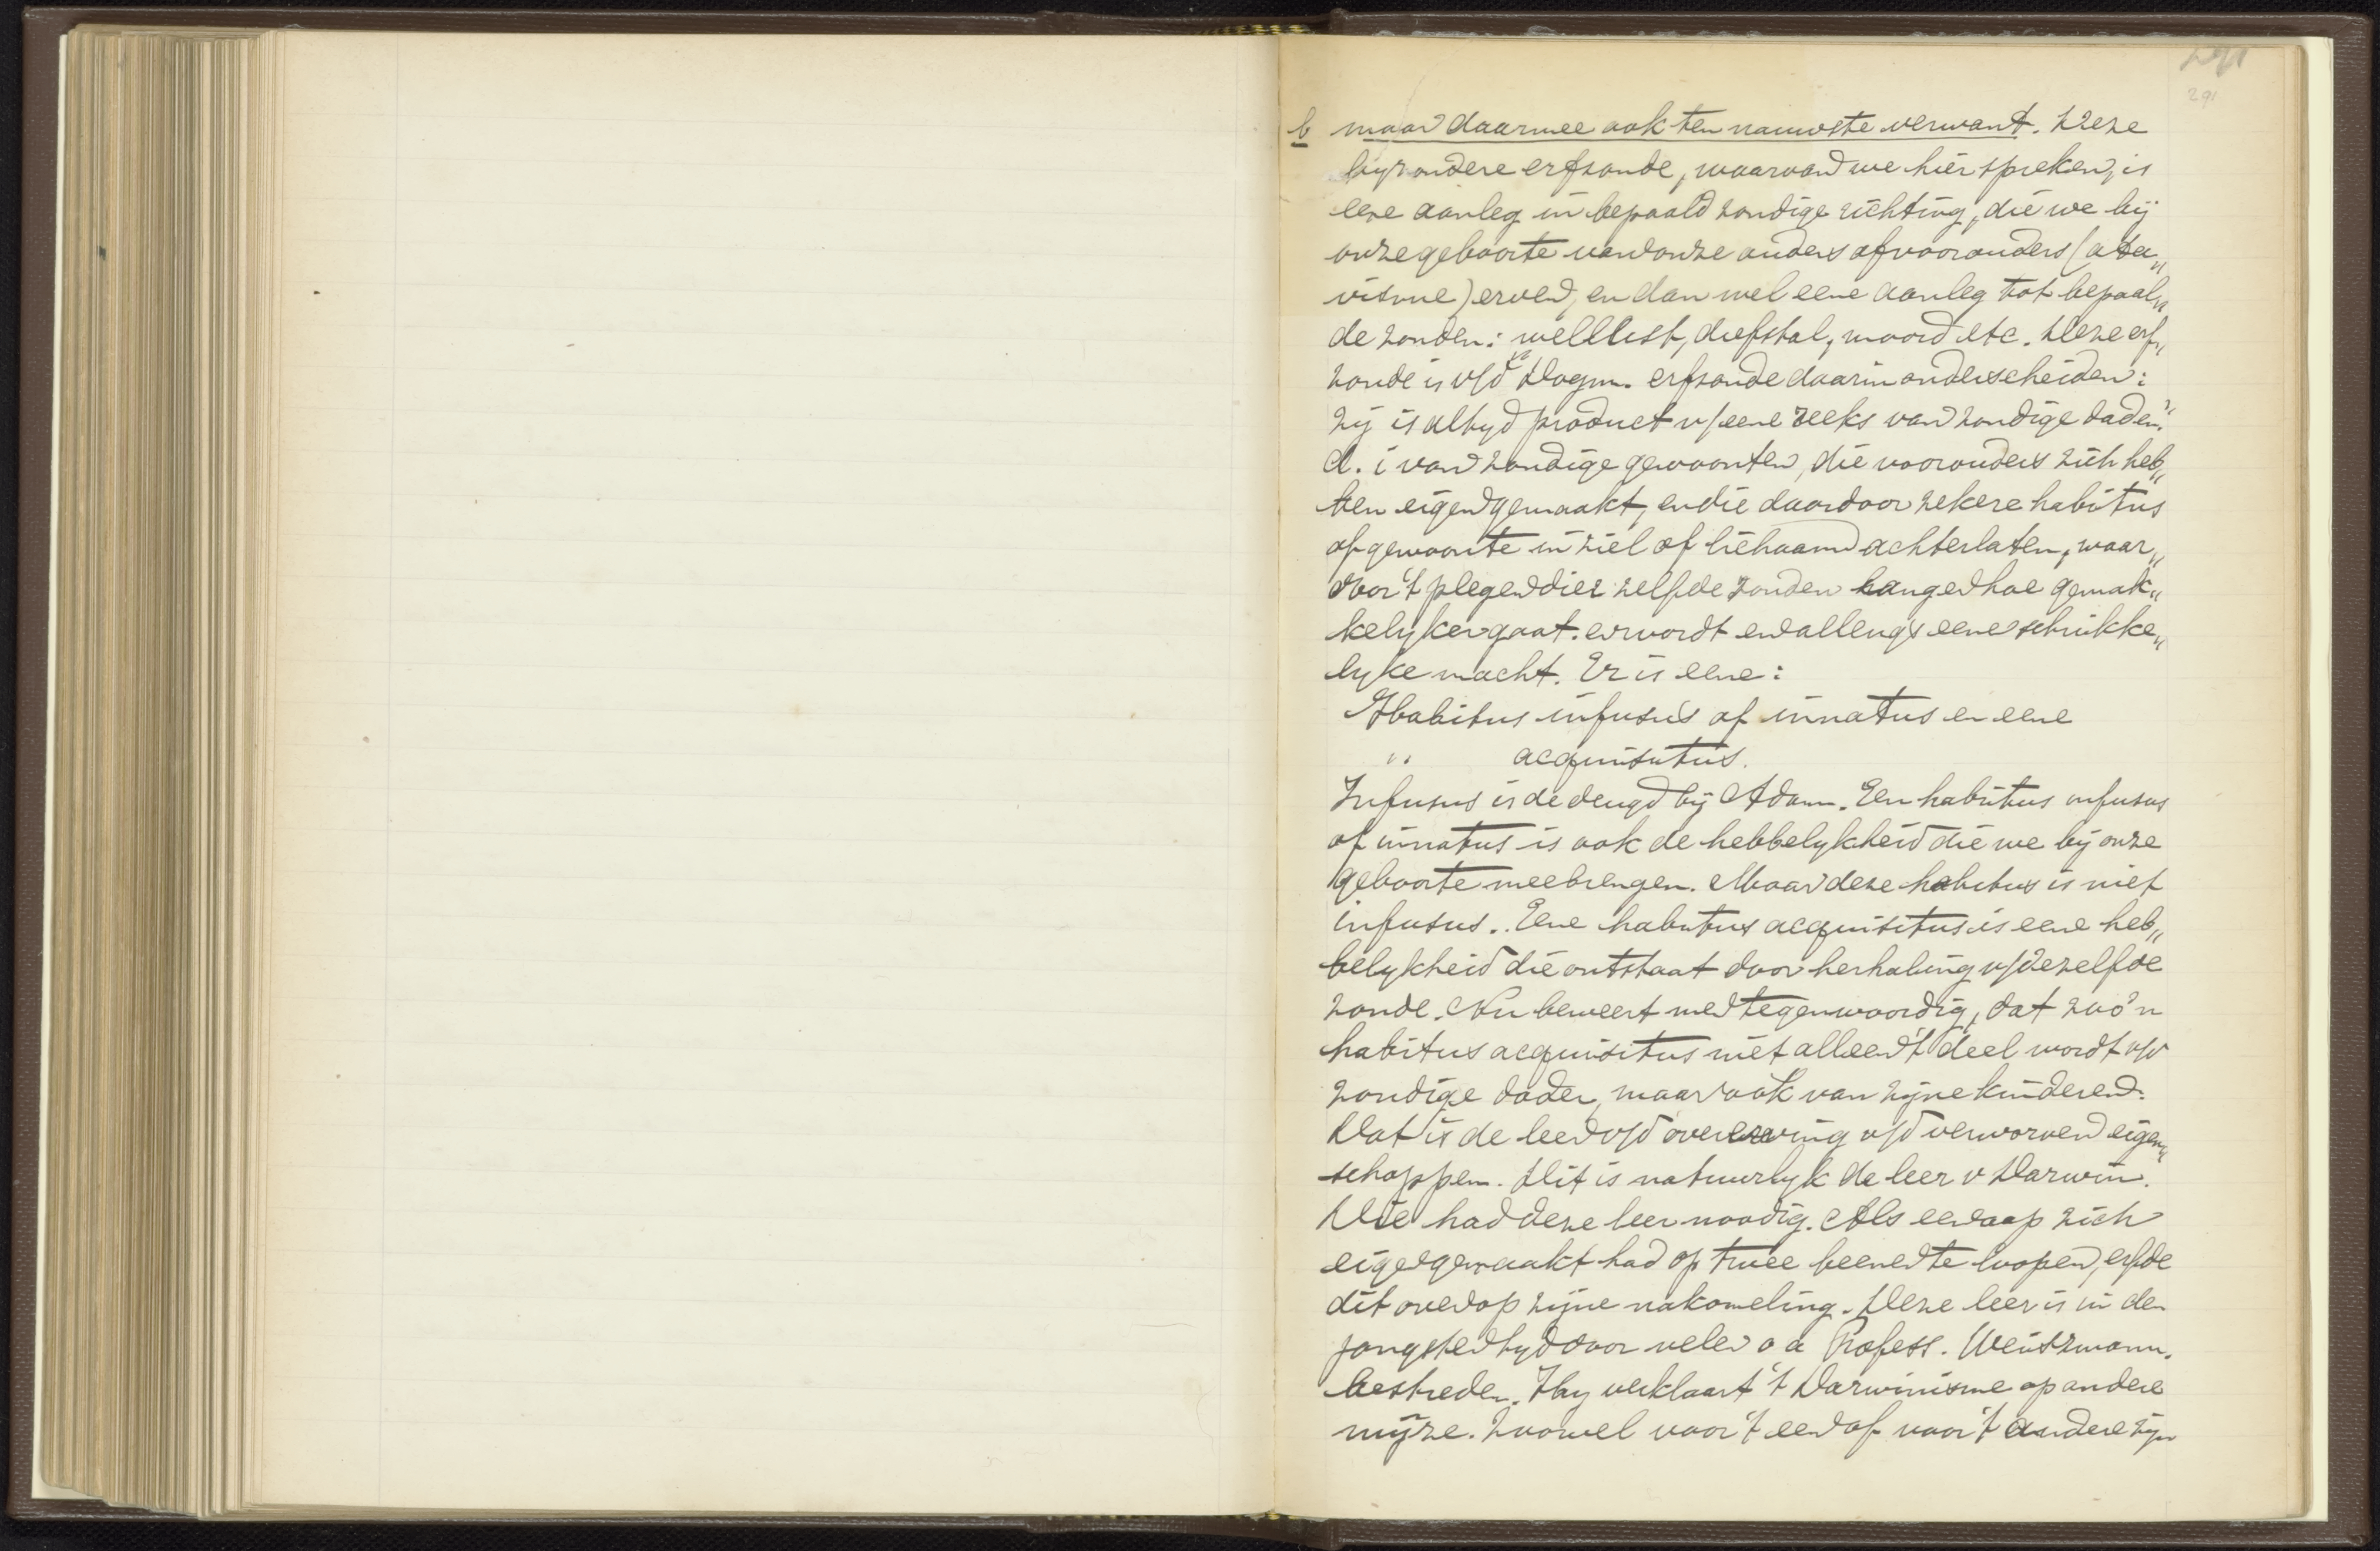 291
b maar daarmee ook ten nauwste verwant. Deze
byzondere erfzonde, waarvan we hier spreken, is
eene aanleg in bepaald zondige richting, die we bij
onze geboorte van onze ouders of voorouders (ata„
visme) erven, en dan wel eene aanleg tot bepaal„
de zonden: wellust, diefstal, moord etc. Deze erf„
zonde is v/d Dogm. erfzonde daarin onderscheiden:
zij is altyd product v/eene reeks van zondige daden.
d. i van zondige gewoonten, die voorouders zich heb„
ben eigen gemaakt, en die daardoor zekere habitus
of gewoonte in ziel of lichaam achterlaten, waar„
door 't plegen dier zelfde zonden hanger hoe gemak„
kelyker gaat. en wordt en allengs eene schrikke„
lyke macht. Er is eene:
Habitus infusus of innatus en eene
" acquisitus.
Infusus is de deugd bij Adam. Een habitus infusus
of innatus is ook de hebbelykheid die we bij onze
geboorte meebrengen. Maar deze habitus is niet
infusus. Eene habitus acquisitus is eene heb„
belykheid die ontstaat door herhaling v/dezelfde
zonde. Nu beweert men tegenwoordig, dat zoo'n
habitus acquisitus niet alleen 't deel wordt v/d
zondige dader, maar ook van zyne kinderen.
Dat is de leer v/d overerving v/d verworven eigen„
schappen. Dit is natuurlyk de leer v Darwin.
Die had deze leer noodig. Als een aap zich
eigen gemaakt had op twee beenen te loopen, erfde
dit over op zyne nakomeling. Deze leer is in den
jongsten tyd door velen o a Profess. Weiszmann.
bestreden. Hy verklaart 't Darwinisme op andere
wijze. Zoowel voor 't een of voor 't andere zyn